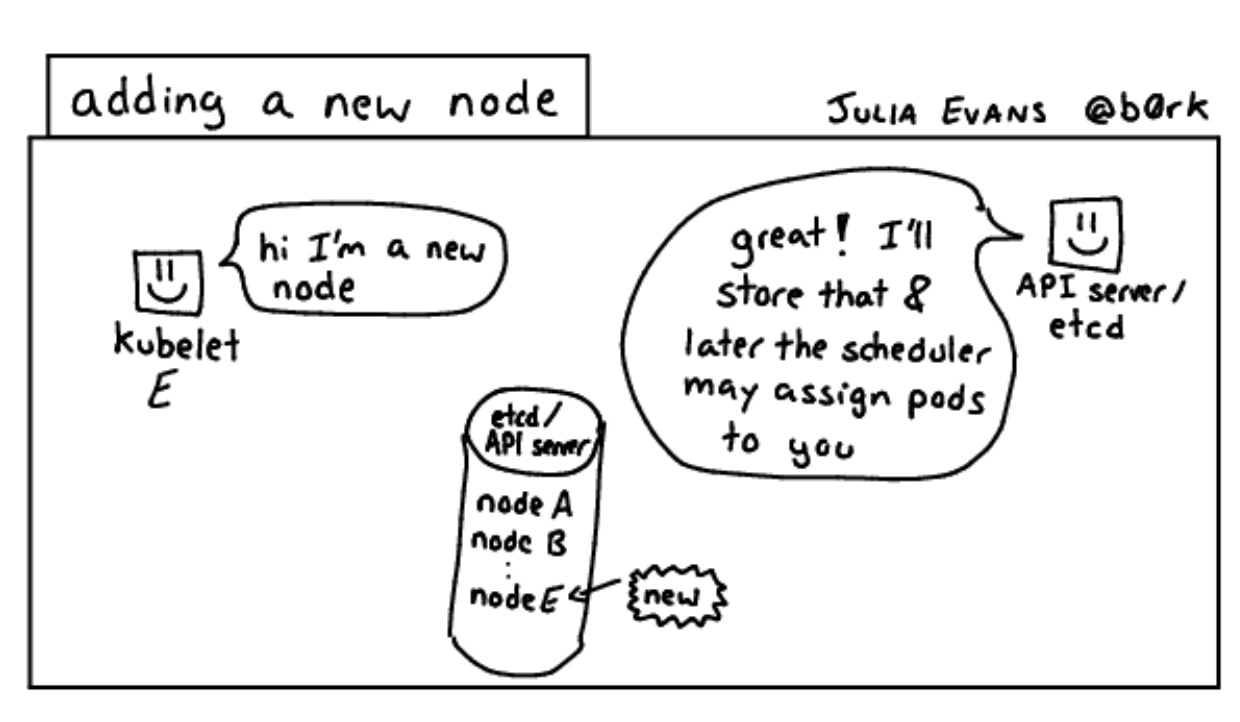 adding a new node
JULIA EVANS @b0rk
hi I'm a new
node
kubelet
E
great! I'll
store that &
later the scheduler
may assign pods
to you
API server/
etcd
etcd/
API server
node A
node B
⋮
node E
new